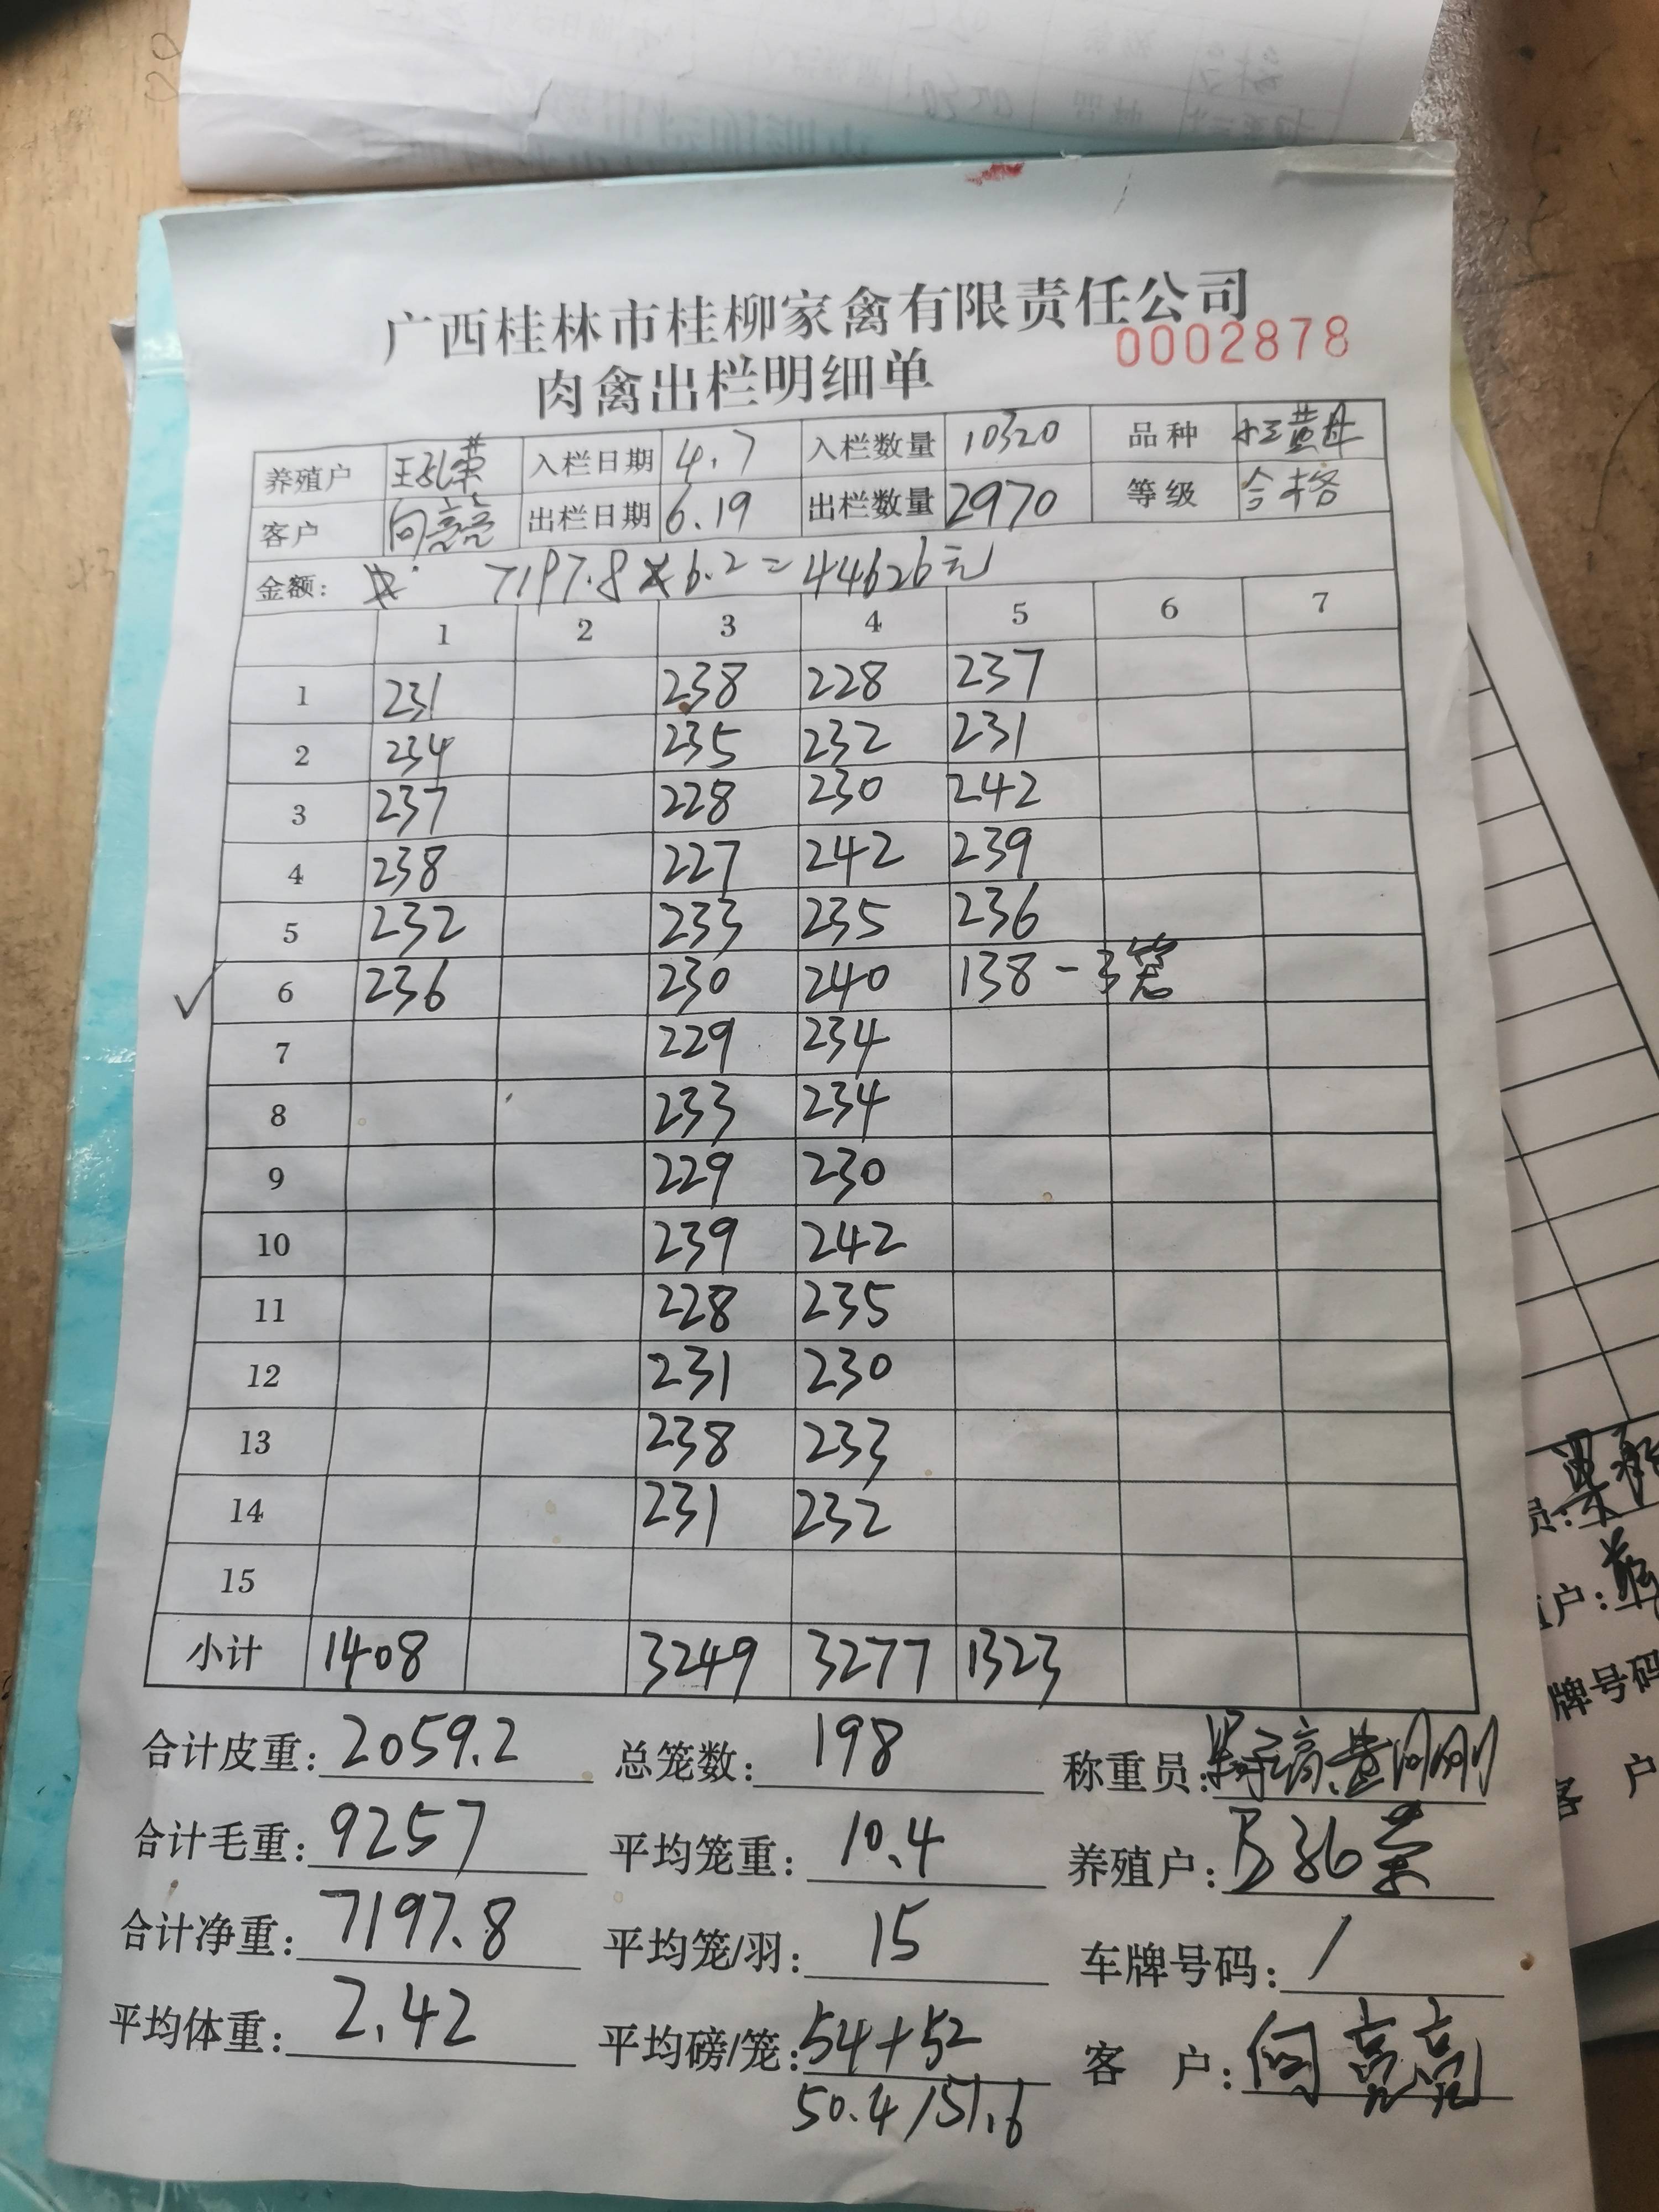 广西桂林市桂柳家禽有限责任公司
0002878
肉禽出栏明细单
养殖户 入栏日期 4.7 入栏数量 10320 品种
客户 向亮亮 出栏日期 6.19 出栏数量 2970 等级 合格
金额: 7197.8×6.2=44626元
1 2 3 4 5 6 7
1 231 238 228 237
2 234 235 232 231
3 237 228 230 242
4 238 227 242 239
5 232 233 235 236
6 236 230 240 138-3笼
7 229 234
8 233 234
9 229 230
10 239 242
11 228 235
12 231 230
13 238 233
14 231 232
15
小计 1408 3249 3277 1323
合计皮重: 2059.2 总笼数: 198 称重员:
合计毛重: 9257 平均笼重: 10.4 养殖户:
合计净重: 7197.8 平均笼/羽: 15 车牌号码: /
平均体重: 2.42 平均磅/笼: 54+52 客 户: 向亮亮
50.4/51.6
员:
户:
牌号码
客 户